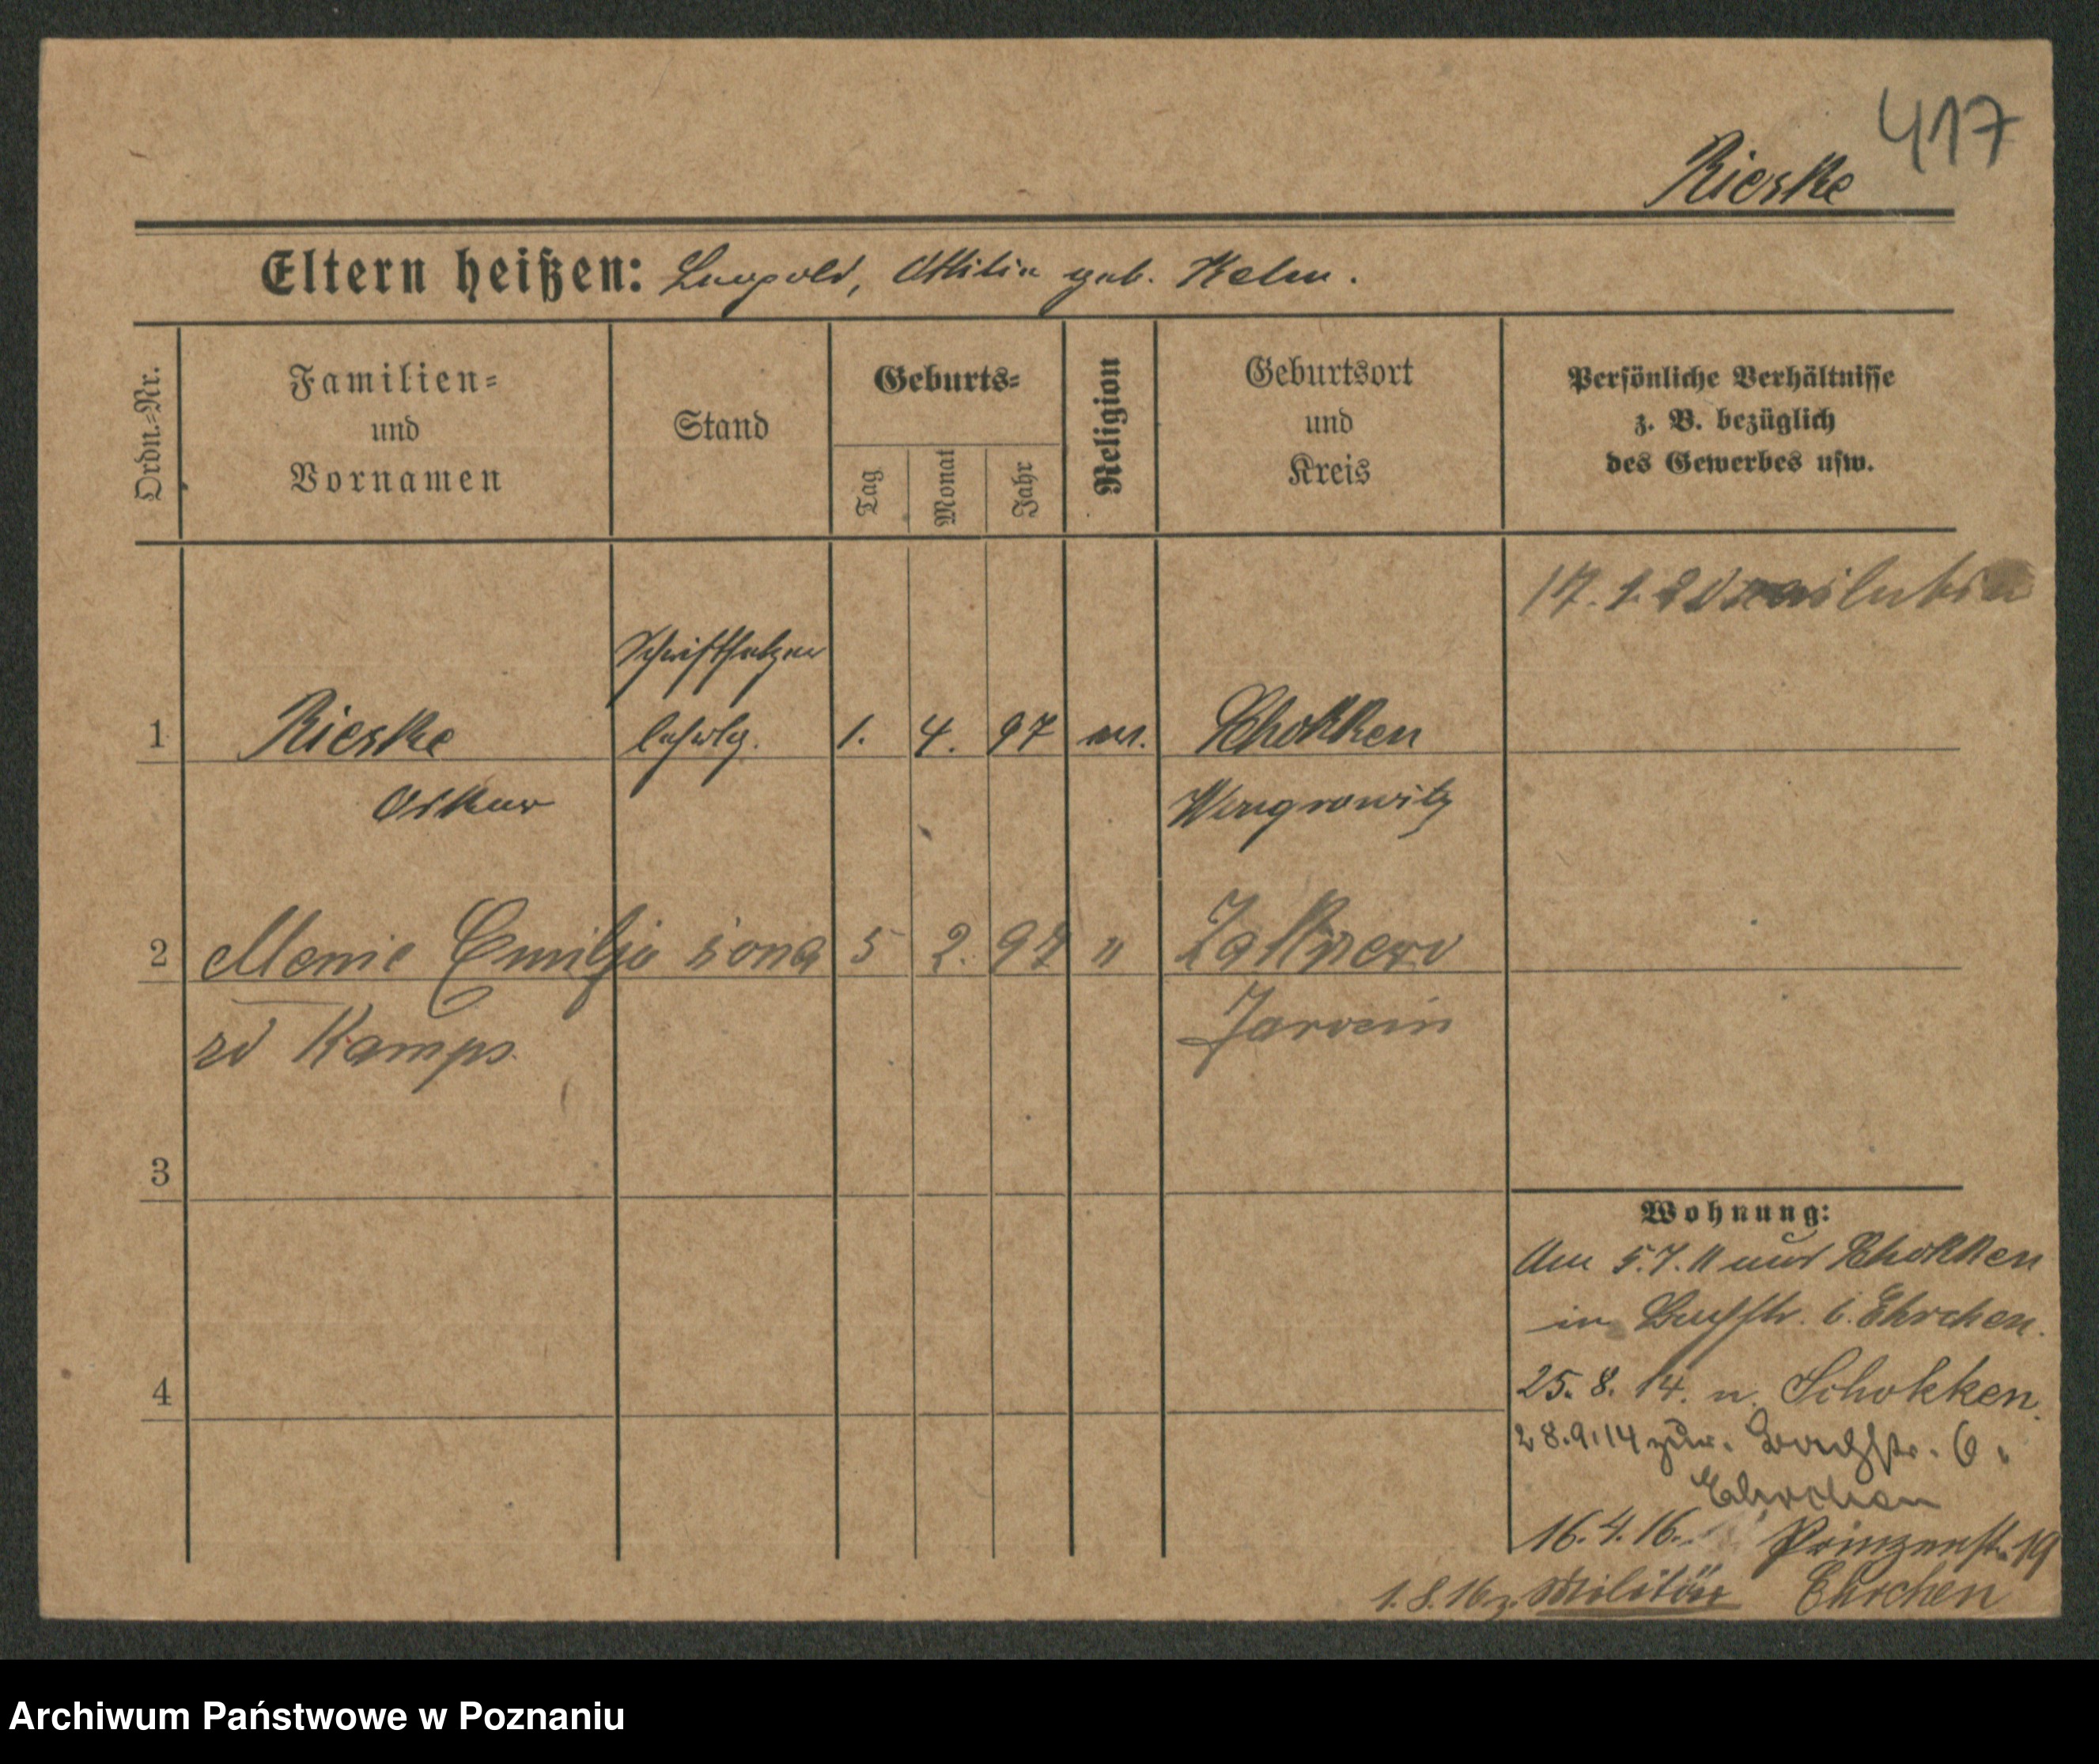 417
Rieske
Eltern heißen: Leopold, Ottilie geb. Kelm.
Ordn.-Nr.
Familien-
und
Vornamen
Stand
Geburts-
Tag
Monat
Jahr
Religion
Geburtsort
und
Kreis
Persönliche Verhältnisse
z. B. bezüglich
des Gewerbes usw.
17. 1. 21
Schriftsetzer
1 Rieske lehrlg. 1. 4. 97 ev. Schokken
Oskar Wongrowitz
2 Emilja żona 5 2. 97 "
zd Kamps
3
4
Wohnung:
Am 5.7.11 aus Schokken
in Bachstr. 6. Ehrchen.
25. 8. 14. n. Schokken.
28.9.14 zur. Bachstr. 6.
Ehrchen
16. 4. 16. Prinzenstr. 19
1. 8. 16 z. Militär Ehrchen
Archiwum Państwowe w Poznaniu